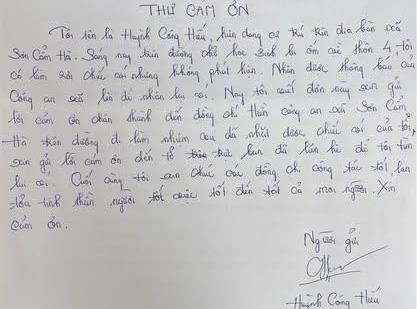 THƯ CẢM ƠN
Tôi tên là Huỳnh Công Hiếu, hiện đang cư trú trên địa bàn xã
Sơn Cẩm Hà. Sáng nay trên đường chở học sinh bị ốm về thôn 4, tôi
có làm rơi chiếc ví nhưng không phát hiện. Nhận được thông báo của
Công an xã lên để nhận lại ví. Nay tôi viết đơn này xin gửi
lời cảm ơn chân thành đến đồng chí Hiền công an xã Sơn Cẩm
Hà trên đường đi làm nhiệm vụ đã nhặt được chiếc ví của tôi,
xin gửi lời cảm ơn đến tổ trực ban đã liên hệ để tôi tìm
lại ví. Cuối cùng tôi xin chúc các đồng chí công tác tốt, lan
tỏa tinh thần người tốt việc tốt đến tất cả mọi người. Xin
cảm ơn.
Người gửi
Huỳnh Công Hiếu